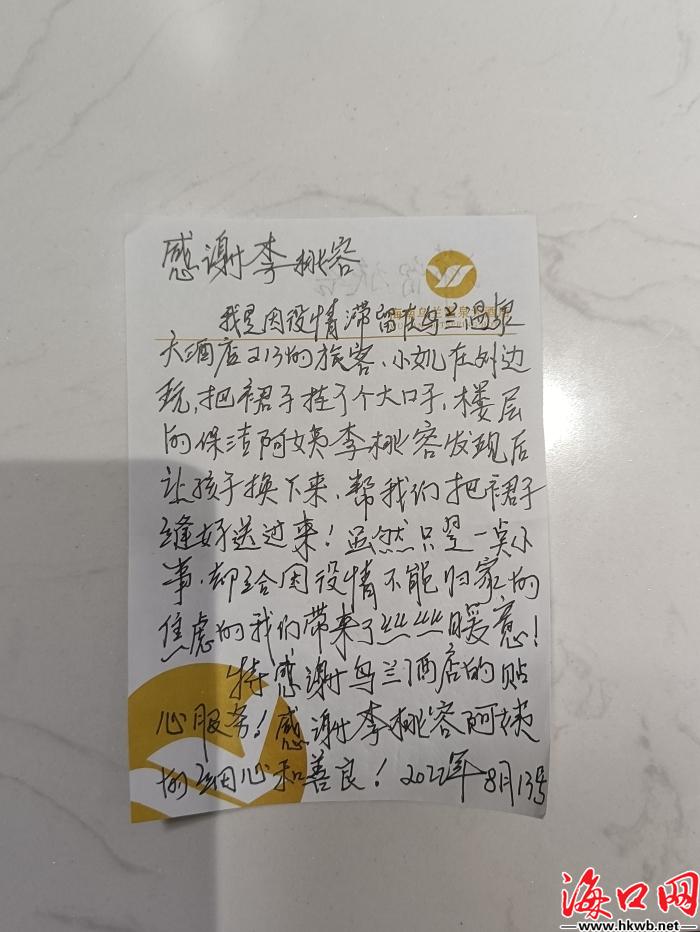 感谢李桃容
我是因役情滞留在乌兰温泉
大酒店213的旅客、小女儿在外边
玩,把裙子挂了个大口子,楼层
的保洁阿姨李桃容发现后
让孩子换下来,帮我们把裙子
缝好送过来!虽然只是一点小
事,却给因役情不能归家的
焦虑的我们带来了丝丝暖意!
特感谢乌兰酒店的贴
心服务!感谢李桃容阿姨
的细心和善良!2022年8月13号
海口网
www.hkwb.net